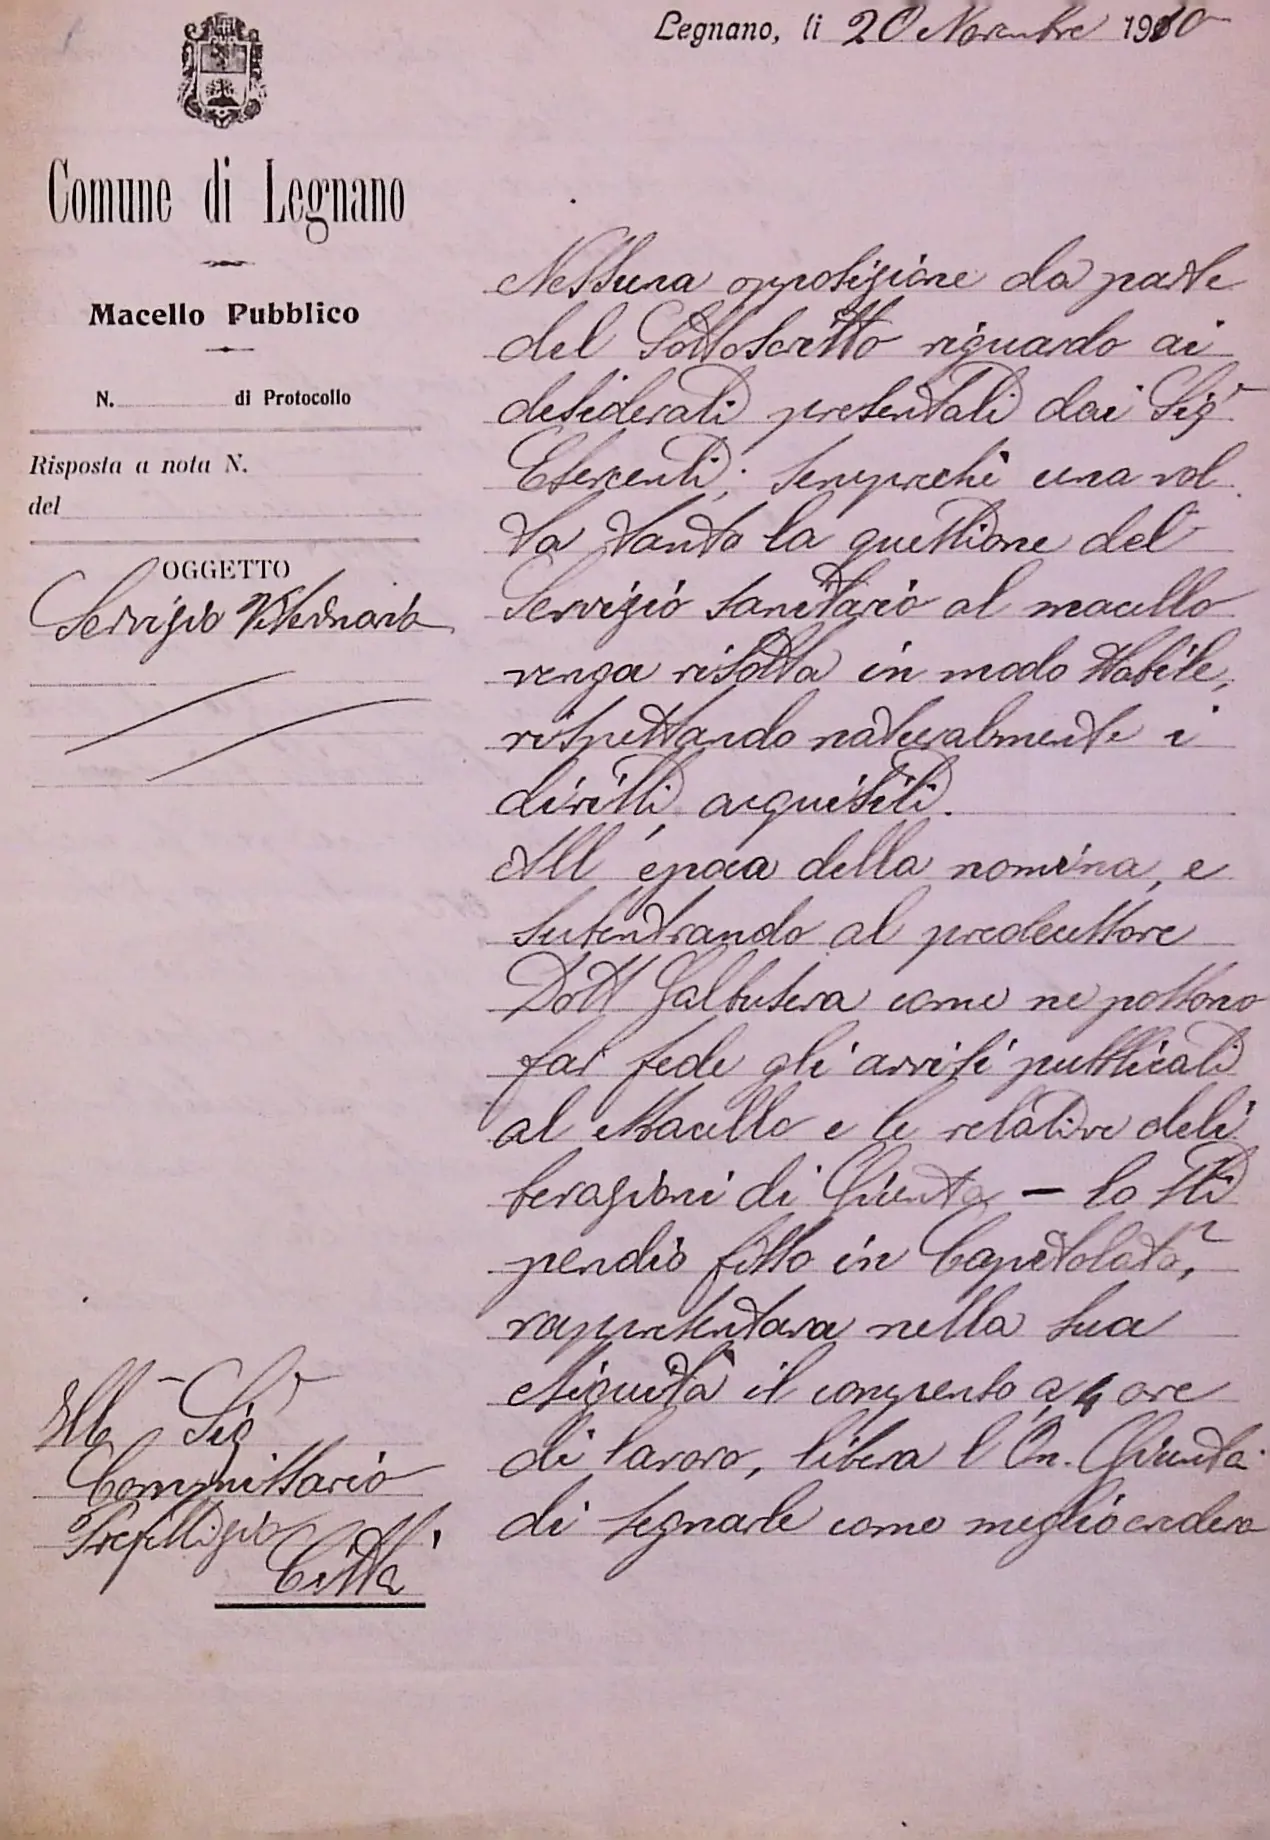 Legnano, li 20 Novembre 1910
Comune di Legnano
Macello Pubblico
N. di Protocollo
Risposta a nota N.
del
OGGETTO
Servizio Veterinario
Nessuna opposizione da parte
del Sottoscritto riguardo ai
desiderati presentati dai Sigr
Esercenti; sempreché una vol
ta tanto la questione del
Servizio Sanitario al macello
venga risolta in modo stabile,
rispettando naturalmente i
diritti acquisiti.
All'epoca della nomina, e
subentrando al predecessore
Dott Galbusera come ne possono
far fede gli avvisi pubblicati
al Macello e le relative deli
berazioni di Giunta — lo sti
pendio fisso in Capitolato,
rappresentava nella sua
esiguità il compenso a 4 ore
di lavoro, libera l'On. Giunta
di segnarle come meglio credeva
Ill Sigr
Commissario
Prefettizio
Città